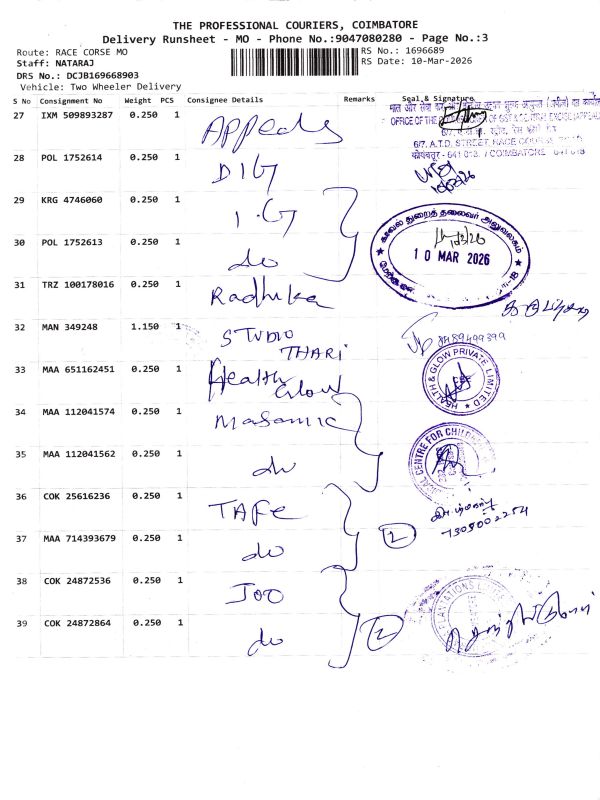 THE PROFESSIONAL COURIERS, COIMBATORE
Delivery Runsheet - MO - Phone No.:9047080280 - Page No.:3
Route: RACE CORSE MO
RS No.: 1696689
Staff: NATARAJ
RS Date: 10-Mar-2026
DRS No.: DCJB169668903
Vehicle: Two Wheeler Delivery
S No Consignment No Weight PCS Consignee Details Remarks Seal & Signature
27 IXM 509893287 0.250 1 Appeals
6/7, A.T.D. STREET, RACE COURSE
641 018. / COIMBATORE - 641 018
28 POL 1752614 0.250 1 DIG
29 KRG 4746060 0.250 1 I.G
30 POL 1752613 0.250 1 do
காவல் துறைத் தலைவர் அலுவலகம்
10 MAR 2026
31 TRZ 100178016 0.250 1 Radhika
32 MAN 349248 1.150 1 STUDIO
THARI
9489499399
33 MAA 651162451 0.250 1 Health
Glow
HEALTH & GLOW PRIVATE LIMITED
34 MAA 112041574 0.250 1 Masonic
CENTRE FOR CHILDREN
35 MAA 112041562 0.250 1 do
36 COK 25616236 0.250 1 TAFE
2
7305002254
37 MAA 714393679 0.250 1 do
38 COK 24872536 0.250 1 JOO
PLANTATIONS
2
39 COK 24872864 0.250 1 do